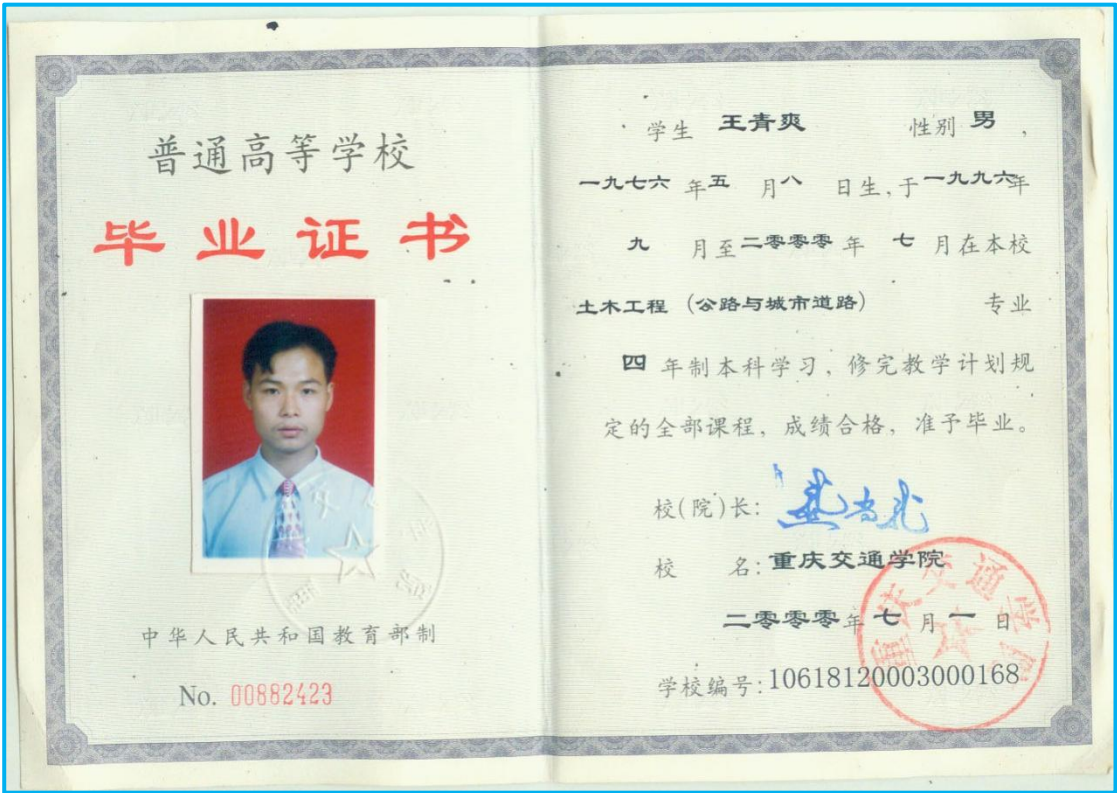 普通高等学校
毕业证书
中华人民共和国教育部制
No. 00882423
学生 王青爽 性别 男，
一九七六 年 五 月 八 日生，于 一九九六年
九 月至 二零零零 年 七 月在本校
土木工程（公路与城市道路） 专业
四 年制本科学习，修完教学计划规
定的全部课程，成绩合格，准予毕业。
校(院)长：
校 名：重庆交通学院
二零零零 年 七 月 一 日
学校编号：10618120003000168
重庆交通学院